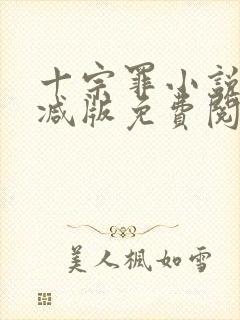 十宗罪小說
減版免費閱
美人楓如雪